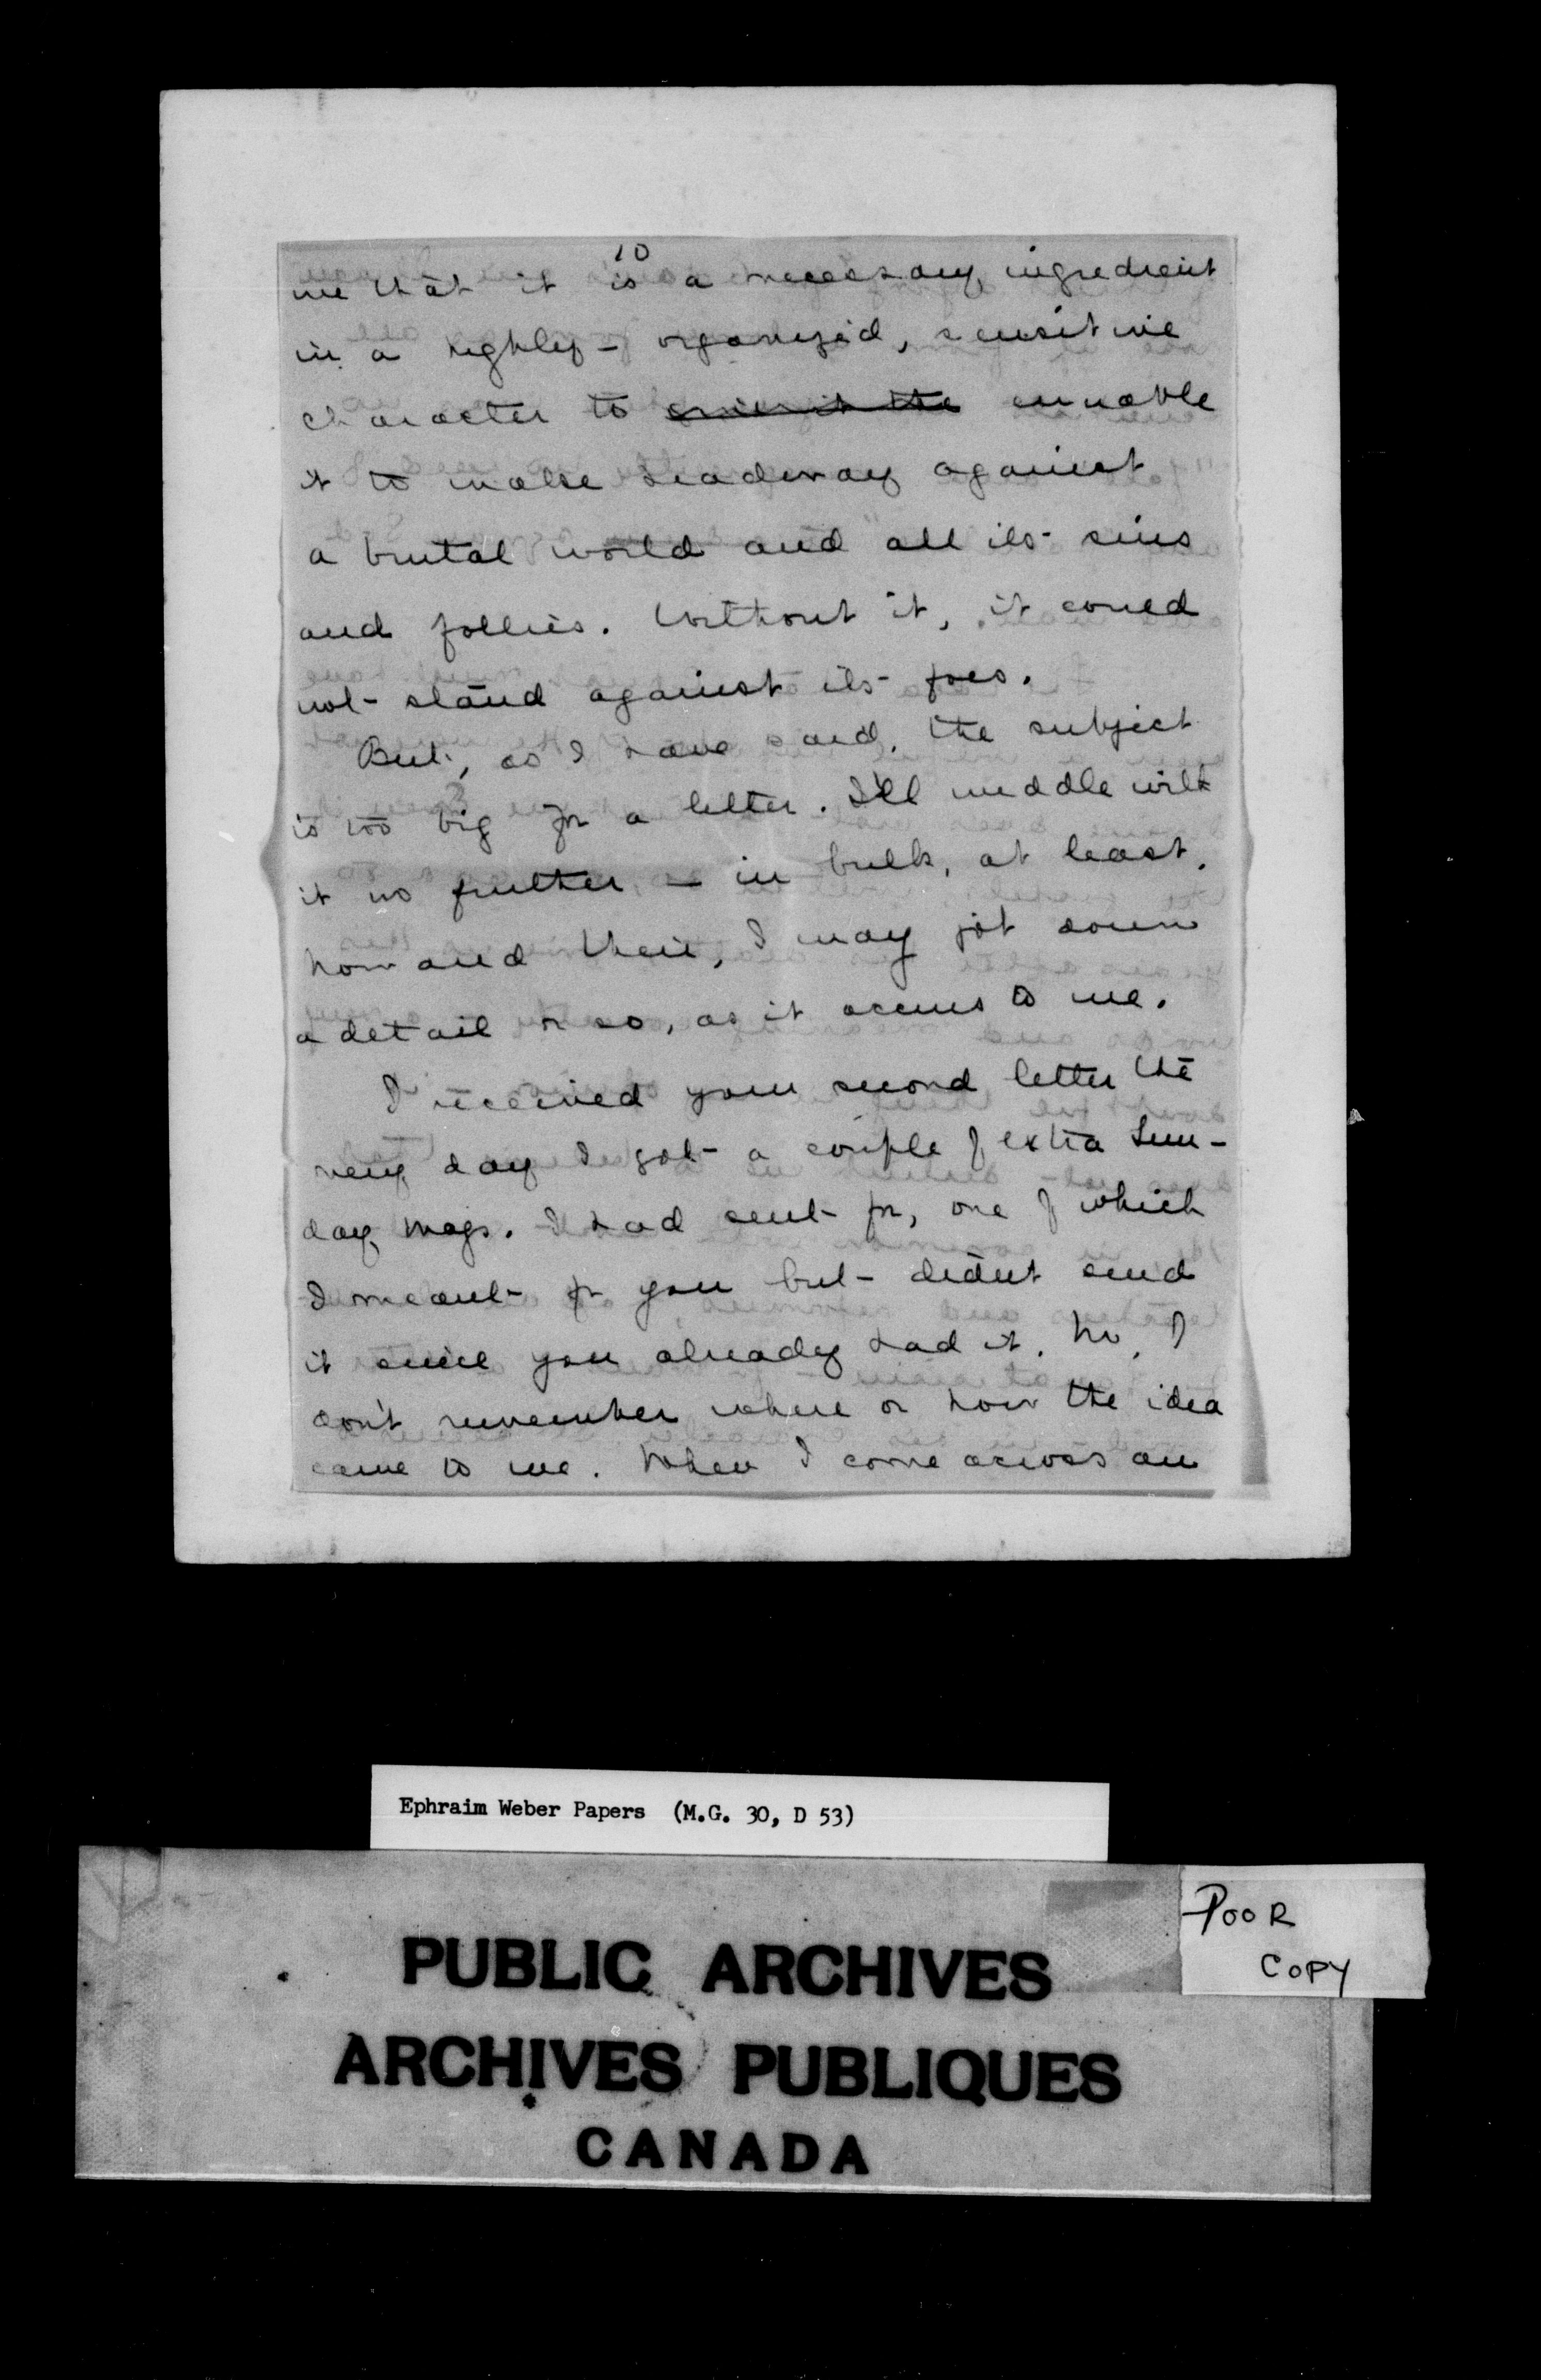 10
me that it is a necessary ingredient
in a highly- organized, sensitive
character to ennable
it to make headway against
a brutal world and all its sins
and follies. Without it, it could
not stand against its foes.
But, as I have said, the subject
is too big for a letter. I'll meddle with
it no further - in bulk, at least.
Now and then, I may jot down
a detail or so, as it occurs to me.
I received your second letter the
very day I got a couple of extra Sun-
day Mags. I had sent for, one of which
I meant for you but didn't send
it since you already had it. No, I
don't remember where or how the idea
came to me. When I come across an
Ephraim Weber Papers (M.G. 30, D 53)
POOR
COPY
PUBLIC ARCHIVES
ARCHIVES PUBLIQUES
CANADA